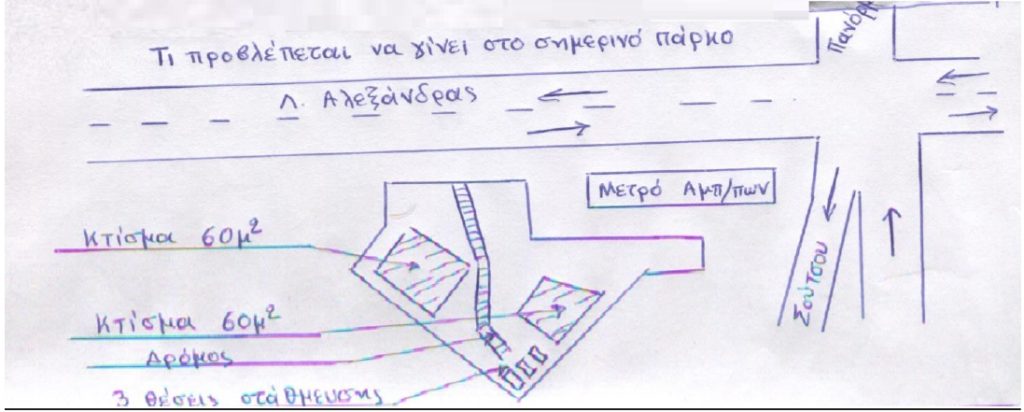 Τι προβλέπεται να γίνει στο σημερινό πάρκο
Λ. Αλεξάνδρας
Μετρό Αμπ/πων
Κτίσμα 60μ²
Κτίσμα 60μ²
Δρόμος
3 θέσεις στάθμευσης
Σούτσου